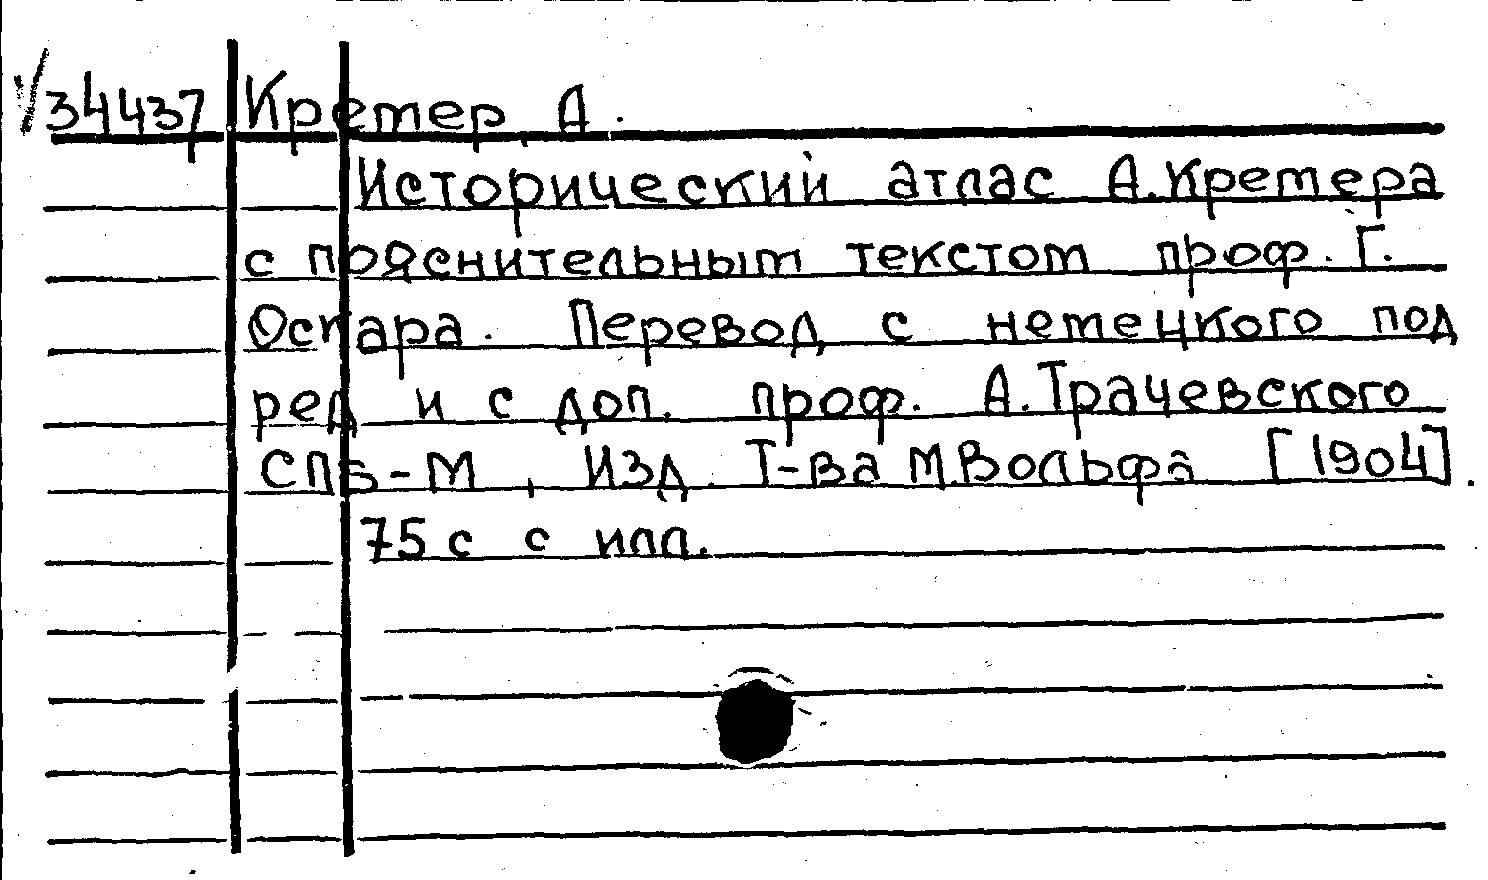 34437 Кретер А.
Исторический атлас А.Кретера
с пояснительным текстом проф. Г.
Оскара. Перевод с немецкого под
ред и с доп. проф. А.Трачевского
СПБ-М, Изд. Т-ва М.Вольфа [1904].
75 с с илл.